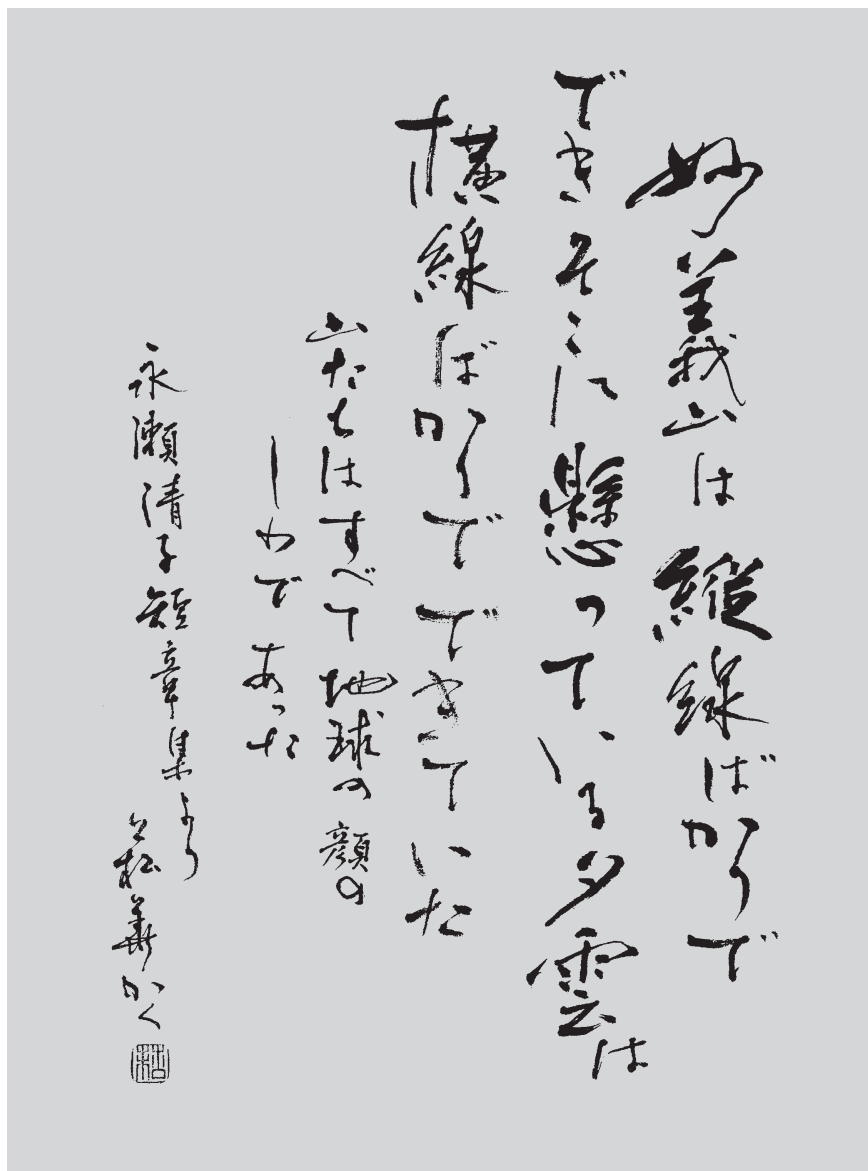 妙義山は縦線ばかりで
できそこに懸っている夕雲は
横線ばかりでできていた
山たちはすべて地球の顔の
しわであった
永瀬清子短章集より
松華かく